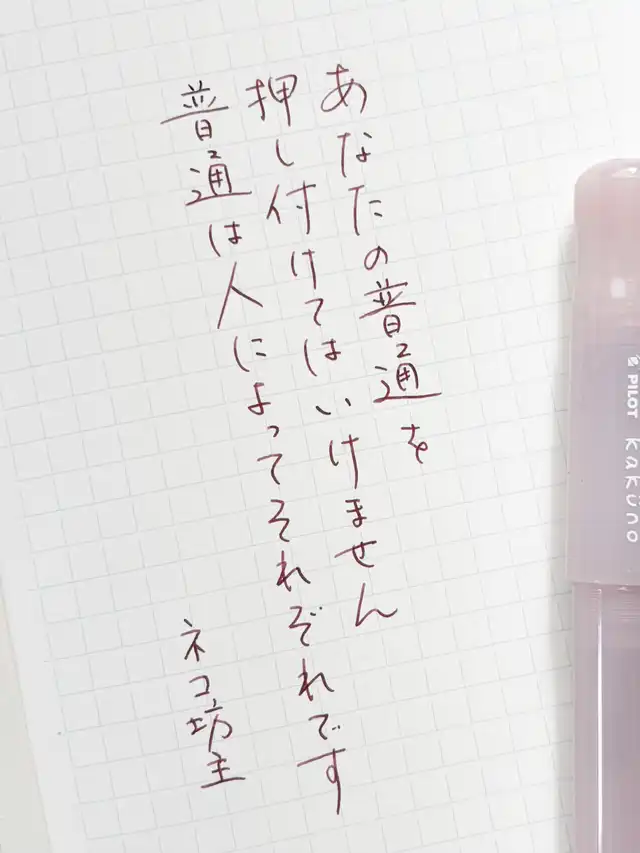 あなたの普通を
押し付けてはいけません
普通は人によってそれぞれです
ネコ坊主
PILOT kakūno